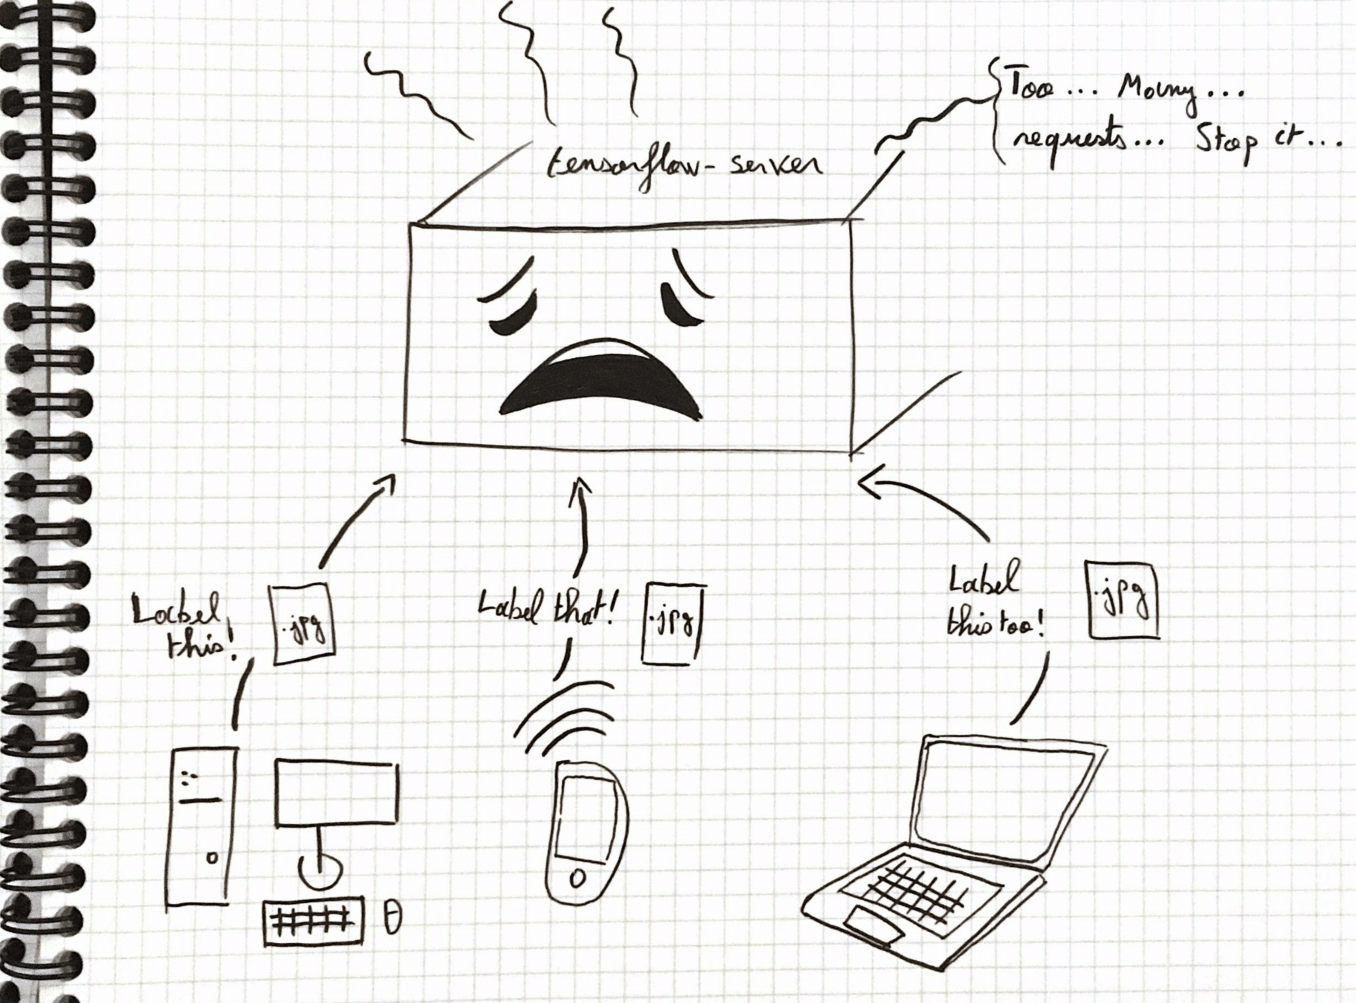 Too... Many...
requests... Stop it...
tensorflow-server
Label
this!
.jpg
Label that!
.jpg
Label
this too!
.jpg